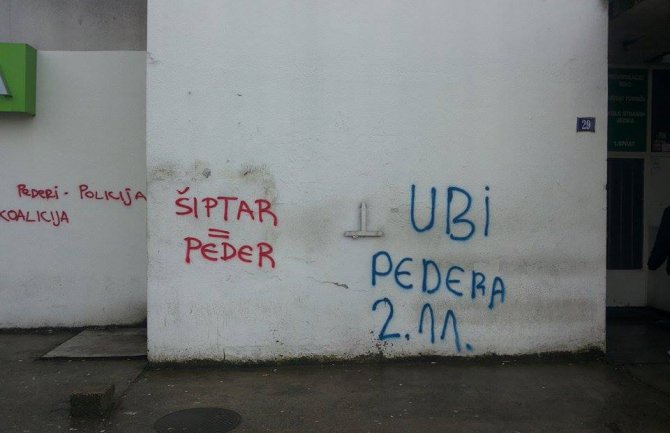 PEDERI - POLICIJA
KOALICIJA
ŠIPTAR
=
PEDER
UBi
PEDERA
2.11.
29